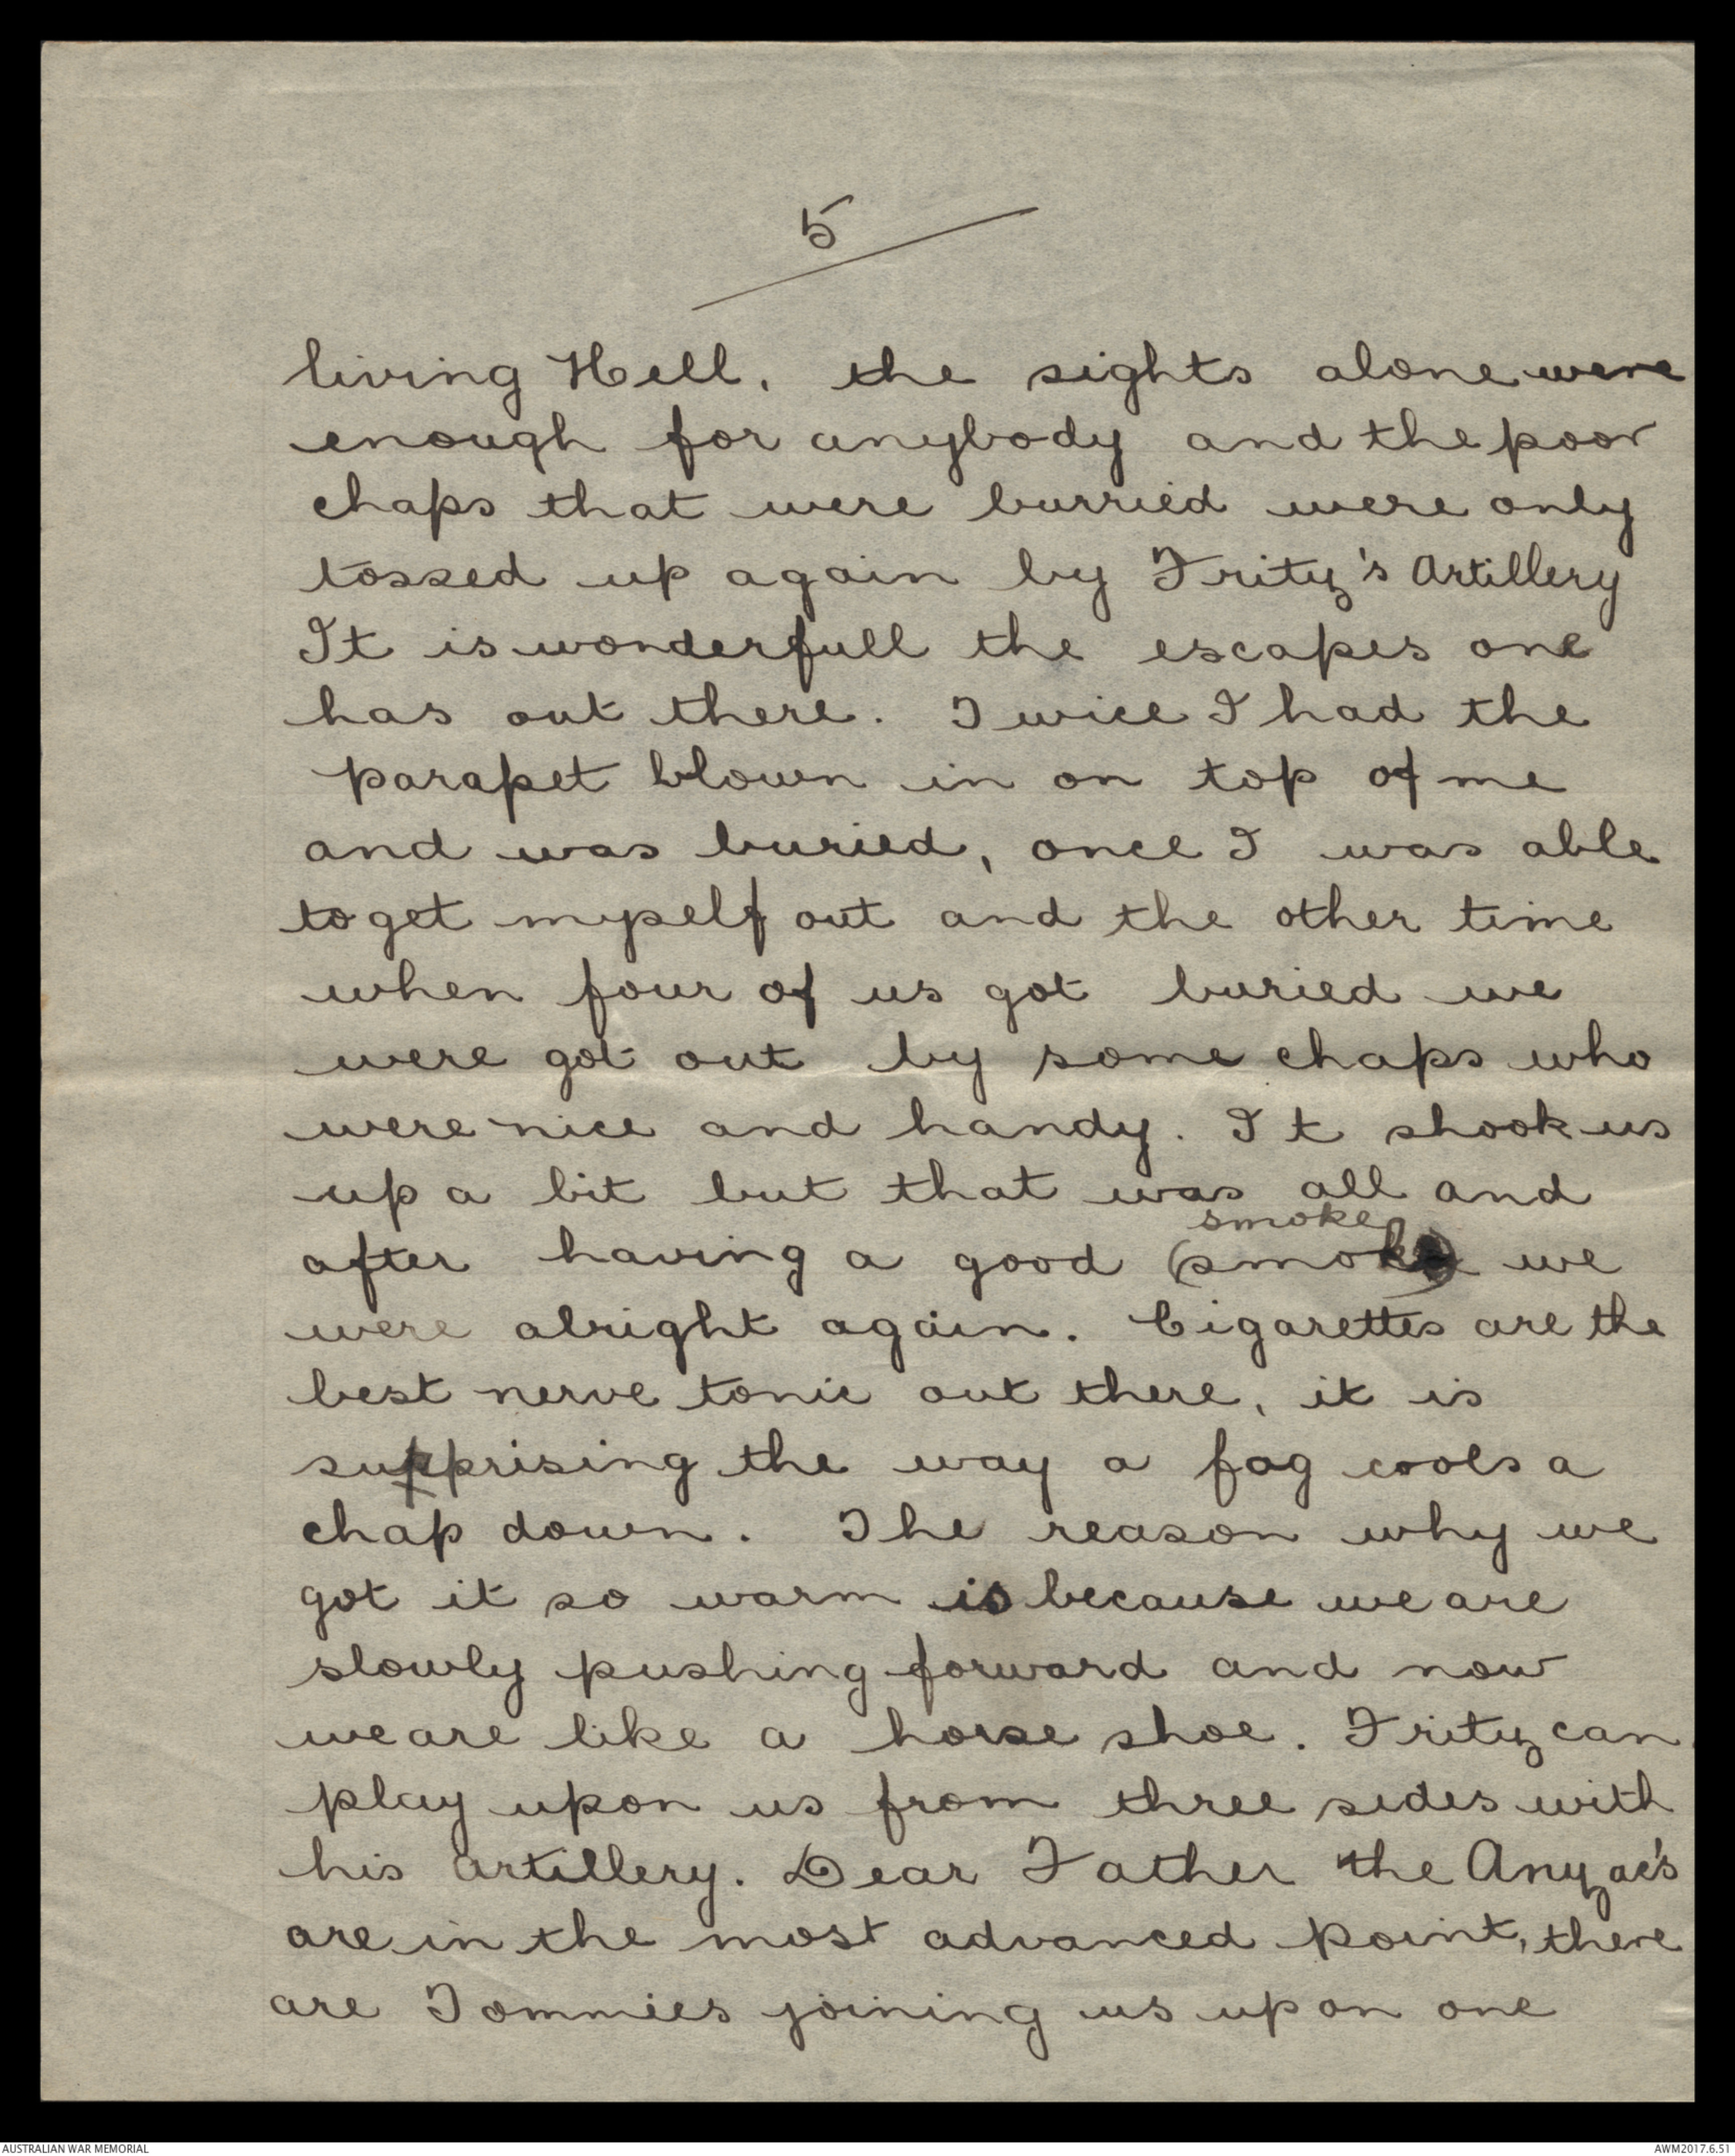 5
living Hell, the sights alone were
enough for anybody and the poor
chaps that were burried were only
tossed up again by Fritz's Artillery
It is wonderfull the escapes one
has out there. Twice I had the
parapet blown in on top of me
and was buried, once I was able
to get myself out and the other time
when four of us got buried we
were got out by some chaps who
were nice and handy. It shook us
up a bit but that was all and
smoke
after having a good (smoke) we
were alright again. Cigarettes are the
best nerve tonic out there, it is
supprising the way a fag cools a
chap down. The reason why we
got it so warm is because we are
slowly pushing forward and now
we are like a horse shoe. Fritz can
play upon us from three sides with
his artillery. Dear Father the Anzac's
are in the most advanced point, there
are Tommies joining us upon one
AUSTRALIAN WAR MEMORIAL
AWM2017.6.51